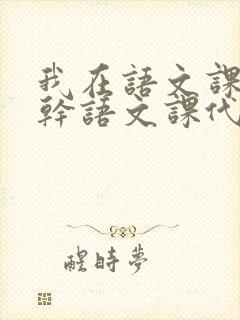 我在語文課
幹語文課代
醒時夢